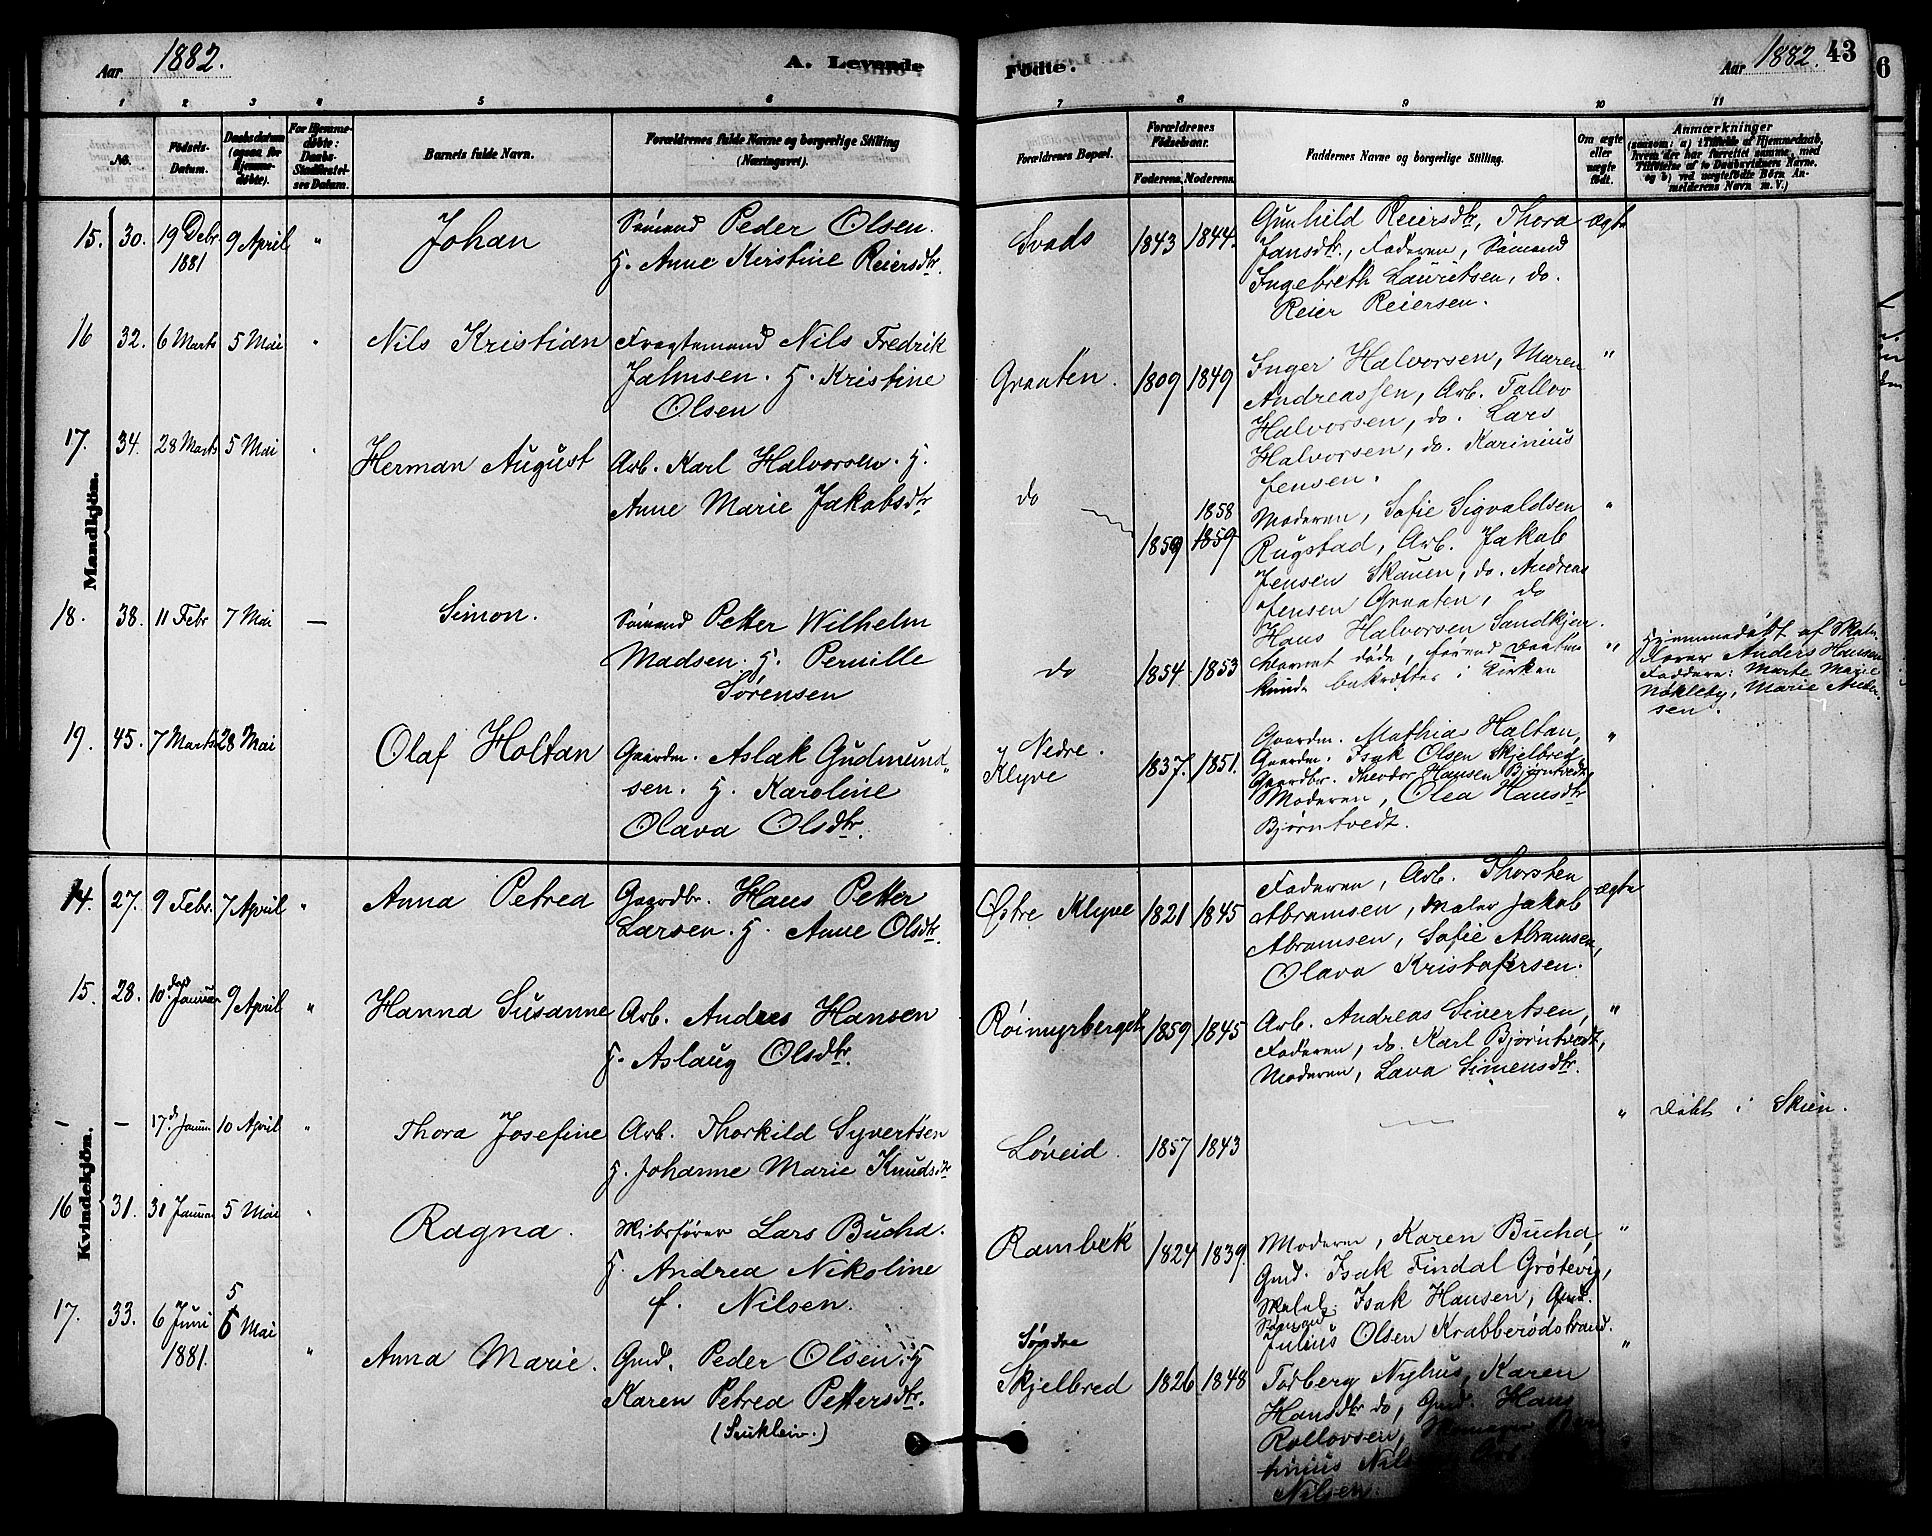 Aar 1882.
A. Levende
Fødte.
Aar 1882. 43
6
1 2 3 4 5 6 7 8 9 10 11
No.
Födsels-Datum.
Daabsdatum (ogsaa for Hjemme-døbte).
For Hjemme-døbte: Daabs-Stadfæstel-ses Datum.
Barnets fulde Navn.
Forældrenes fulde Navne og borgerlige Stilling
(Næringsvei).
Forældrenes Bopæl.
Forældrenes Födselsaar.
Faderens. Moderens.
Faddernes Navne og borgerlige Stilling.
Om ægte eller uægte født.
Anmærkninger
(saasom: a) i Tilfælde af Hjemmedaab,
hvem der har forrettet samme, med
Tilføielse af to Daabsvidners Navne,
og b) ved uægtefødte Börn An-
melderens Navn m. V.)
Mandkjön.
15. 30. 19 Debr 1881 9 April "
Johan
Sömand Peder Olsen.
H. Anne Kirstine Reiersdtr.
Svads 1843 1844.
Gunhild Reiersdtr, Thora
Jansdtr., Faderen, Sömand
Ingebreth Lauritsen, do.
Reier Reiersen.
ægte
16 32. 6 Marts 5 Mai "
Nils Kristian
Fragtemand Nils Fredrik
Jahnsen. H. Kristine
Olsen
Graaten. 1809 1849
Inger Halvorsen, Maren
Andreassen, Arb. Tallov
Halvorsen, do. Lars
Halvorsen, do. Karinius
Jensen.
"
17. 34. 28 Marts 5 Mai "
Herman August
Arb. Karl Halvorsen. H.
Anne Marie Jakobsdtr
do 1859 1858
1859
Moderen, Sofie Sigvaldsen
Rugstad, Arb. Jakob
Jensen Skauen, do. Andreas
Jensen Graaten, do
Hans Halvorsen Sandkjen.
"
18. 38. 11 Febr 7 Mai —
Simon.
Sömand Petter Wilhelm
Madsen. H. Pernille
Sörensen
do 1854. 1853
Barnet døde, førend Daaben
kunde bekræftes i Kirken
"
Hjemmedøbt af
Anders Hansen
Faddere: Marte Marie
Nøkleby, Marie Ander-
sen.
19. 45. 7 Marts 28 Mai
Olaf Holtan
Gaardm. Aslak Gudmund-
sen. H. Karoline
Olava Olsdtr.
Nedre.
Klyve 1837. 1851.
Gaardm. Mathias Haltan,
Gaardm. Isak Olsen Skjelbred
Gaardbr. Theodor Hansen Bjørntvedt,
Moderen, Olea Hansdtr
Bjørntvedt.
"
Kvindekjön.
14. 27. 9 Febr. 7 April "
Anna Petrea
Gaardbr. Hans Petter
Larsen. H. Anne Olsdtr.
Østre Klyve 1821 1845
Faderen, Arb. Thorsten
Abramsen, Maler Jakob
Abramsen, Sofie Abramsen,
Olava Kristofersen.
ægte
15. 28. 10 Januar 9 April "
Hanna Susanne
Arb. Andres Hansen
H. Aslaug Olsdtr.
Röimyrberget 1859 1845
Arb. Andreas Sivertsen,
Faderen, do. Karl Bjørntvedt,
Moderen, Lava Simensdtr.
"
– – 17d Januar 10 April "
Thora Josefine
Arb. Thorkild Syvertsen
H. Johanne Marie Knudsdtr
Løveid. 1857 1843
" Døbt i Skien.
16 31. 31 Januar 5 Mai "
Ragna.
Skibsfører Lars Bucha.
H. Andrea Nikoline
f. Nilsen.
Rambek 1824 1839.
Moderen, Karen Bucha,
Gmd. Isak Findal Grötevig,
Isak Hansen, Gmd.
Sömand
Julius Olsen Krabberödstrand.
"
17. 33. 6 Juni 1881. 5 Mai "
Anna Marie.
Gmd. Peder Olsen. H
Karen Petrea Pettersdtr.
Söndre
Skjelbred 1826 1848
Torberg Nyhus, Karen
Hansdtr do, Gmd. Hans
Rollovsen,
Nilsen.
"